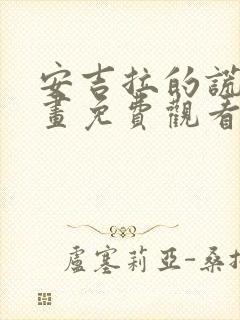 安吉拉的謊
畫免費觀看
盧塞莉亞-桑擔